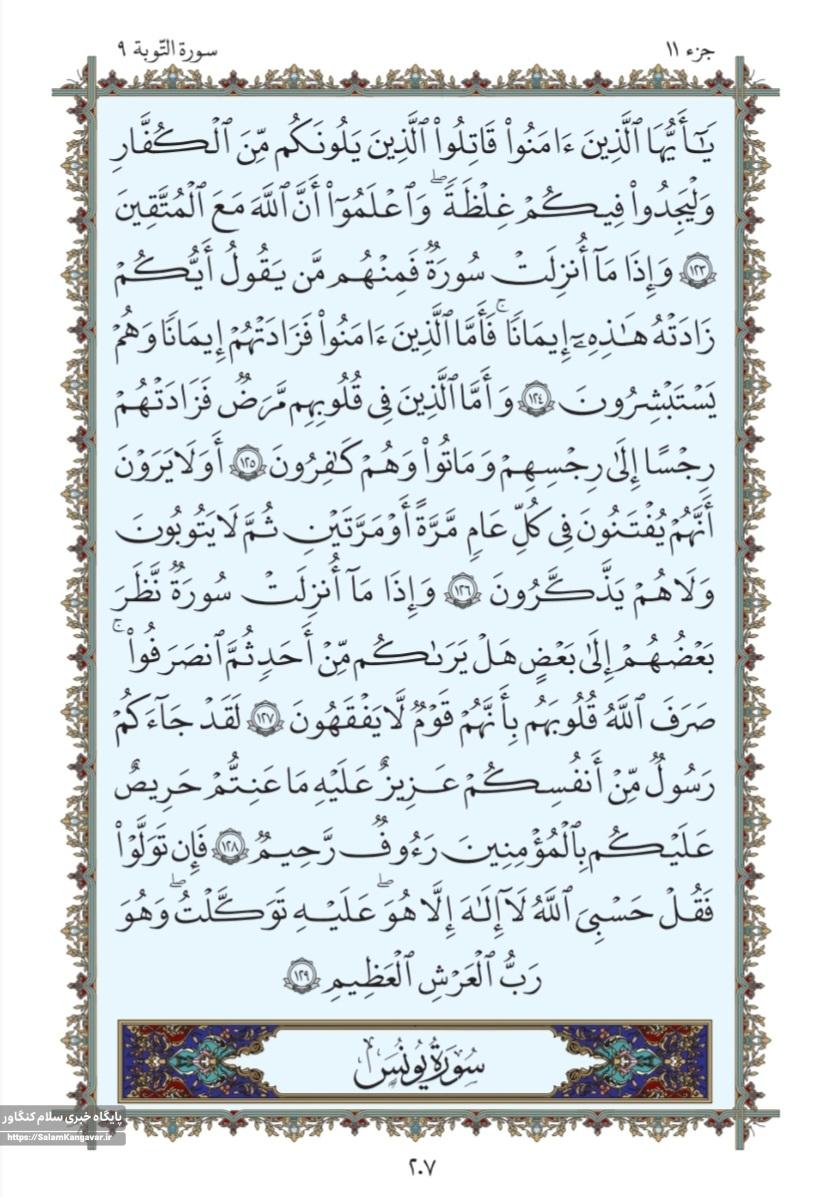 جزء ١١
سورة التّوبة ٩
يَـٰٓأَيُّهَا ٱلَّذِينَ ءَامَنُواْ قَاتِلُواْ ٱلَّذِينَ يَلُونَكُم مِّنَ ٱلْكُفَّارِ
وَلْيَجِدُواْ فِيكُمْ غِلْظَةً ۖ وَٱعْلَمُوٓاْ أَنَّ ٱللَّهَ مَعَ ٱلْمُتَّقِينَ
١٢٣ وَإِذَا مَآ أُنزِلَتْ سُورَةٌ فَمِنْهُم مَّن يَقُولُ أَيُّكُمْ
زَادَتْهُ هَـٰذِهِۦٓ إِيمَانًا ۚ فَأَمَّا ٱلَّذِينَ ءَامَنُواْ فَزَادَتْهُمْ إِيمَانًا وَهُمْ
يَسْتَبْشِرُونَ ١٢٤ وَأَمَّا ٱلَّذِينَ فِى قُلُوبِهِم مَّرَضٌ فَزَادَتْهُمْ
رِجْسًا إِلَىٰ رِجْسِهِمْ وَمَاتُواْ وَهُمْ كَـٰفِرُونَ ١٢٥ أَوَلَا يَرَوْنَ
أَنَّهُمْ يُفْتَنُونَ فِى كُلِّ عَامٍ مَّرَّةً أَوْ مَرَّتَيْنِ ثُمَّ لَا يَتُوبُونَ
وَلَا هُمْ يَذَّكَّرُونَ ١٢٦ وَإِذَا مَآ أُنزِلَتْ سُورَةٌ نَّظَرَ
بَعْضُهُمْ إِلَىٰ بَعْضٍ هَلْ يَرَىٰكُم مِّنْ أَحَدٍ ثُمَّ ٱنصَرَفُواْ ۚ
صَرَفَ ٱللَّهُ قُلُوبَهُم بِأَنَّهُمْ قَوْمٌ لَّا يَفْقَهُونَ ١٢٧ لَقَدْ جَآءَكُمْ
رَسُولٌ مِّنْ أَنفُسِكُمْ عَزِيزٌ عَلَيْهِ مَا عَنِتُّمْ حَرِيصٌ
عَلَيْكُم بِٱلْمُؤْمِنِينَ رَءُوفٌ رَّحِيمٌ ١٢٨ فَإِن تَوَلَّوْاْ
فَقُلْ حَسْبِىَ ٱللَّهُ لَآ إِلَـٰهَ إِلَّا هُوَ ۖ عَلَيْهِ تَوَكَّلْتُ ۖ وَهُوَ
رَبُّ ٱلْعَرْشِ ٱلْعَظِيمِ ١٢٩
سُورَةُ يُونُسَ
پایگاه خبری سلام کنگاور
https://SalamKangavar.ir
٢٠٧